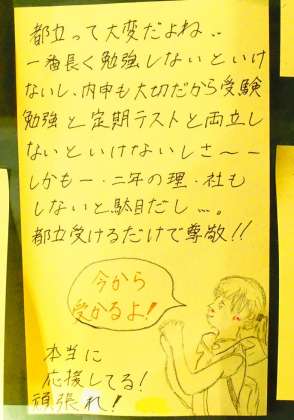 都立って大変だよね..
一番長く勉強しないといけ
ないし、内申も大切だから受験
勉強と定期テストと両立し
ないといけないしさ〜ー
しかも一・二年の理・社も
しないと駄目だし...。
都立受けるだけで尊敬!!
今から
受かるよ!
本当に
応援してる!
頑張れ!